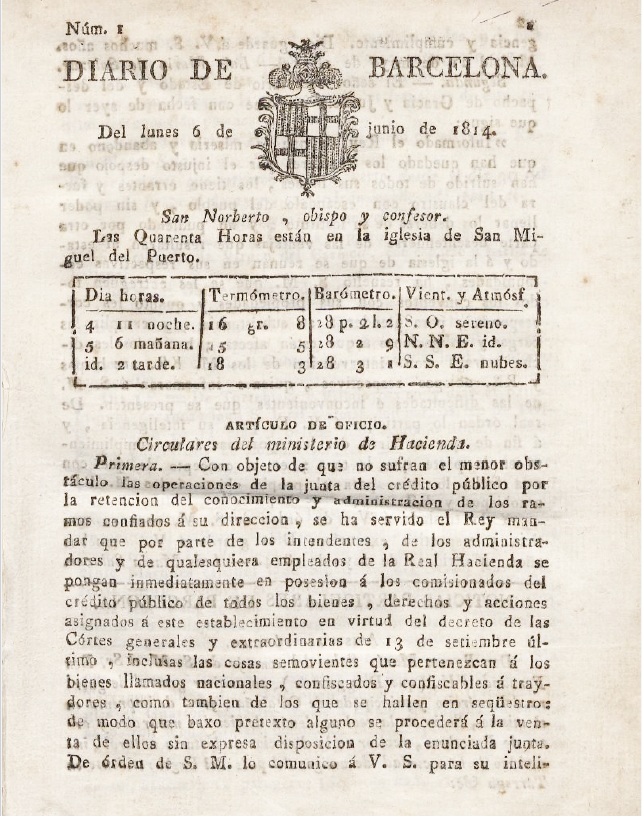 Núm. 1
DIARIO DE BARCELONA.
Del lunes 6 de junio de 1814.
San Norberto , obispo y confesor.
Las Quarenta Horas están en la iglesia de San Mi-
guel del Puerto.
Dia horas. Termómetro. Barómetro. Vient. y Atmósf.
4 11 noche. 16 gr. 8 28 p. 2 l. 2 S. O. sereno.
5 6 mañana. 15 5 28 2 9 N. N. E. id.
id. 2 tarde. 18 3 28 3 1 S. S. E. nubes.
ARTÍCULO DE OFICIO.
Circulares del ministerio de Hacienda.
Primera. — Con objeto de que no sufran el menor obs-
táculo las operaciones de la junta del crédito público por
la retencion del conocimiento y administracion de los ra-
mos confiados á su direccion , se ha servido el Rey man-
dar que por parte de los intendentes , de los administra-
dores y de qualesquiera empleados de la Real Hacienda se
pongan inmediatamente en posesion á los comisionados del
crédito público de todos los bienes , derechos y acciones
asignados á este establecimiento en virtud del decreto de las
Córtes generales y extraordinarias de 13 de setiembre úl-
timo , inclusas las cosas semovientes que pertenezcan á los
bienes llamados nacionales , confiscados y confiscables á tray-
dores , como tambien de los que se hallen en seqüestro:
de modo que baxo pretexto alguno se procederá á la ven-
ta de ellos sin expresa disposicion de la enunciada junta.
De órden de S. M. lo comunico á V. S. para su inteli-